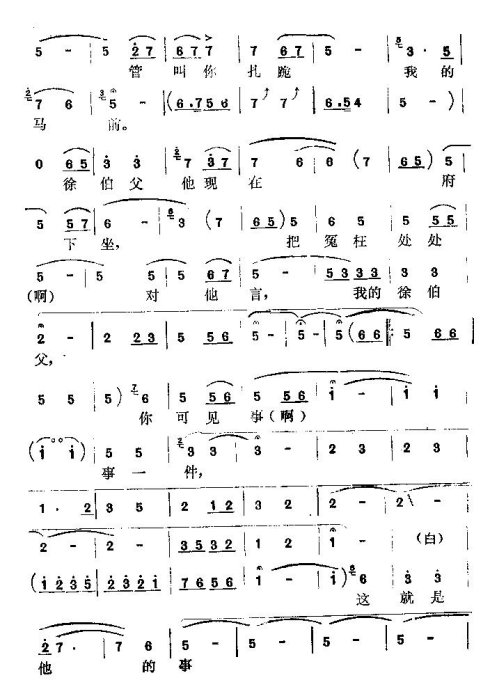 5 - | 5 2 7 | 6 7 7 | 7 6 7 | 5 - | 3 · 5
管 叫 你 扎 跪 我 的
7 6 | 5 - | (6 . 7 5 6 | 7 7 | 6 . 5 4 | 5 - )
马 前。
0 6 5 | 3 3 | 7 3 7 | 7 6 | 6 ( 7 | 6 5 ) 5
徐 伯 父 他 现 在 府
5 5 7 | 6 - | 3 ( 7 | 6 5 ) 5 | 6 5 | 5 5 5
下 坐, 把 冤 枉 处 处
5 - | 5 5 | 5 6 7 | 5 - | 5 3 3 3 | 3 3
(啊) 对 他 言, 我的 徐 伯
2 - | 2 2 3 | 5 5 6 | 5 - | 5 - | 5 ( 6 6 | 5 6 6
父,
5 5 | 5 ) 6 | 5 5 6 | 5 5 6 | 1 - | 1 1
你 可 见 事(啊)
( 1 1 ) | 5 5 | 3 3 | 3 - | 2 3 | 2 3
事 一 件,
1 · 2 | 3 5 | 2 1 2 | 3 2 | 2 - | 2 -
2 - | 2 - | 3 5 3 2 | 1 2 | 1 - | (白)
( 1 2 3 5 | 2 3 2 1 | 7 6 5 6 | 1 - | 1 ) 6 | 3 3
这 就 是
2 7 · | 7 6 | 5 - | 5 - | 5 - | 5 -
他 的 事